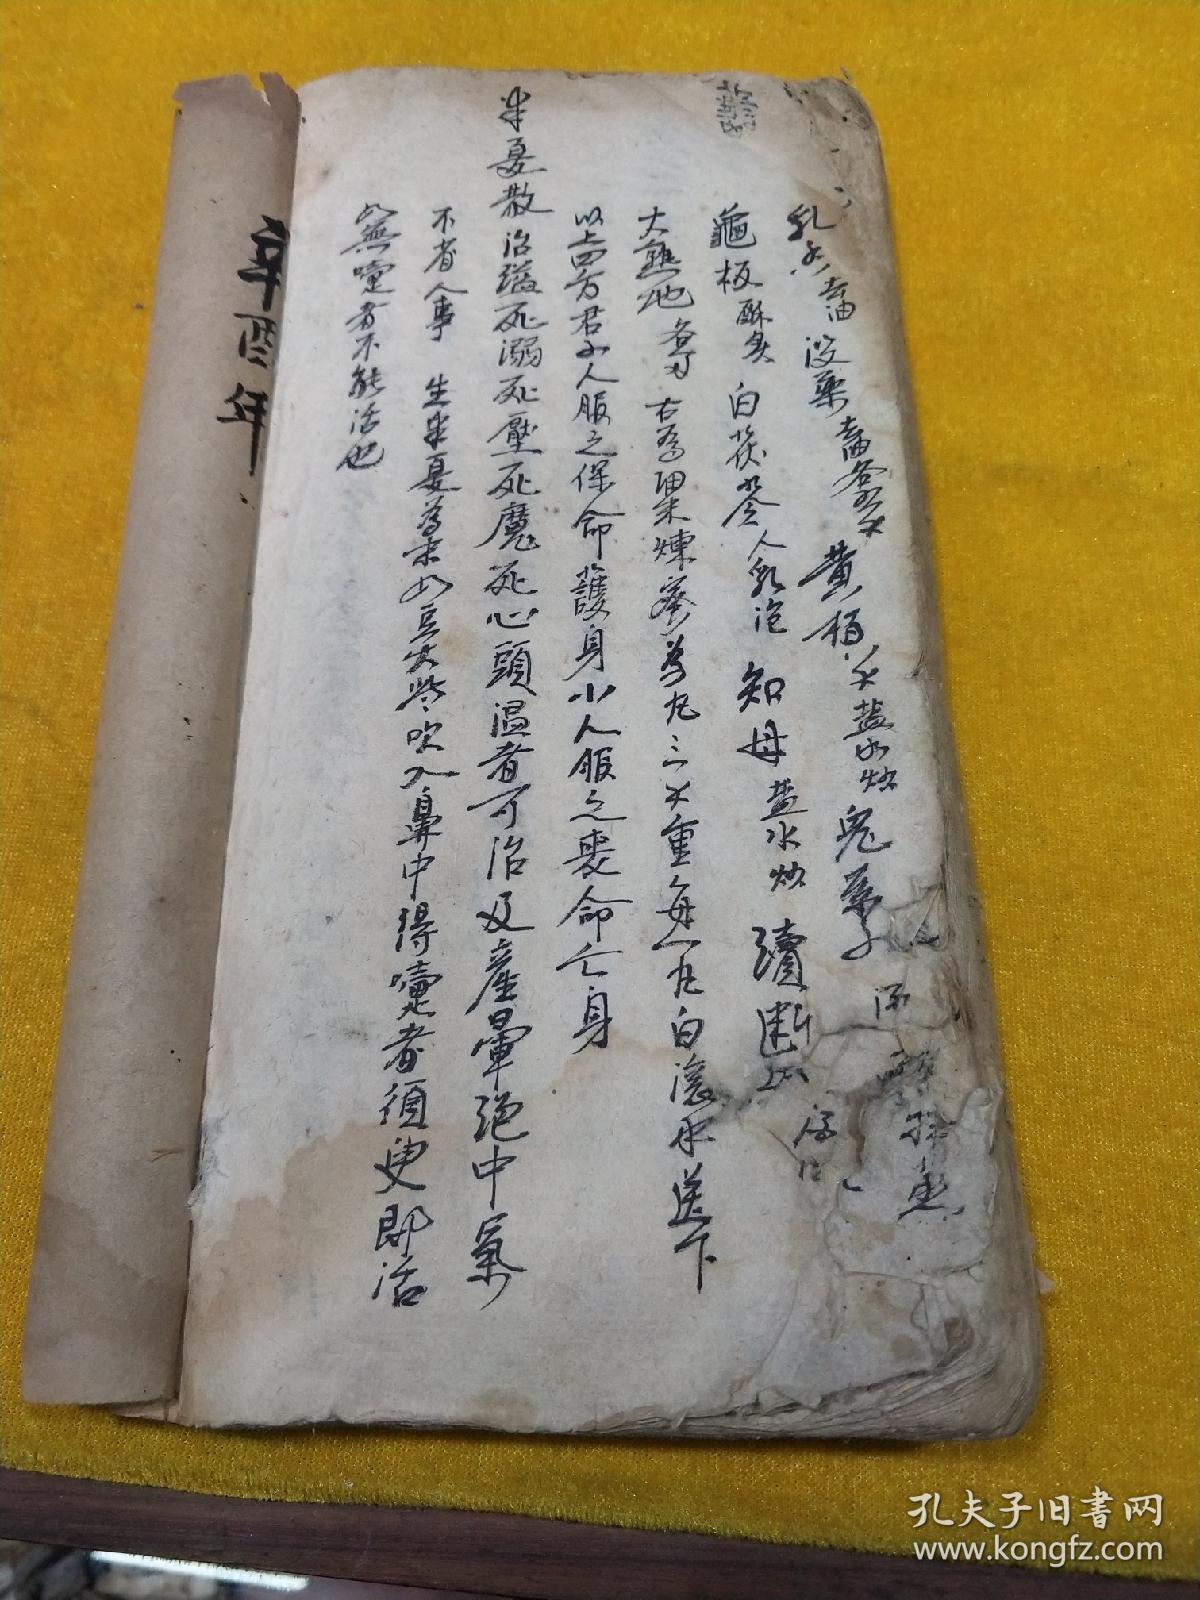 乳香去油 没藥去油各 黃柏 盐水炒 兔絲子
龜板酥炙 白茯苓人乳泡 知母盐水炒 續断
大熟地 右為末煉蜜為丸三重每一丸白滾水送下
以上四方君子人服之保命護身小人服之喪命亡身
半夏散治缢死溺死壓死魔死心頭温者可治及產暈绝中氣
不省人事 生半夏為末如豆大些吹入鼻中得嚏者須臾即活
如無嚏者不能活也
辛酉年
孔夫子旧书网
www.kongfz.com